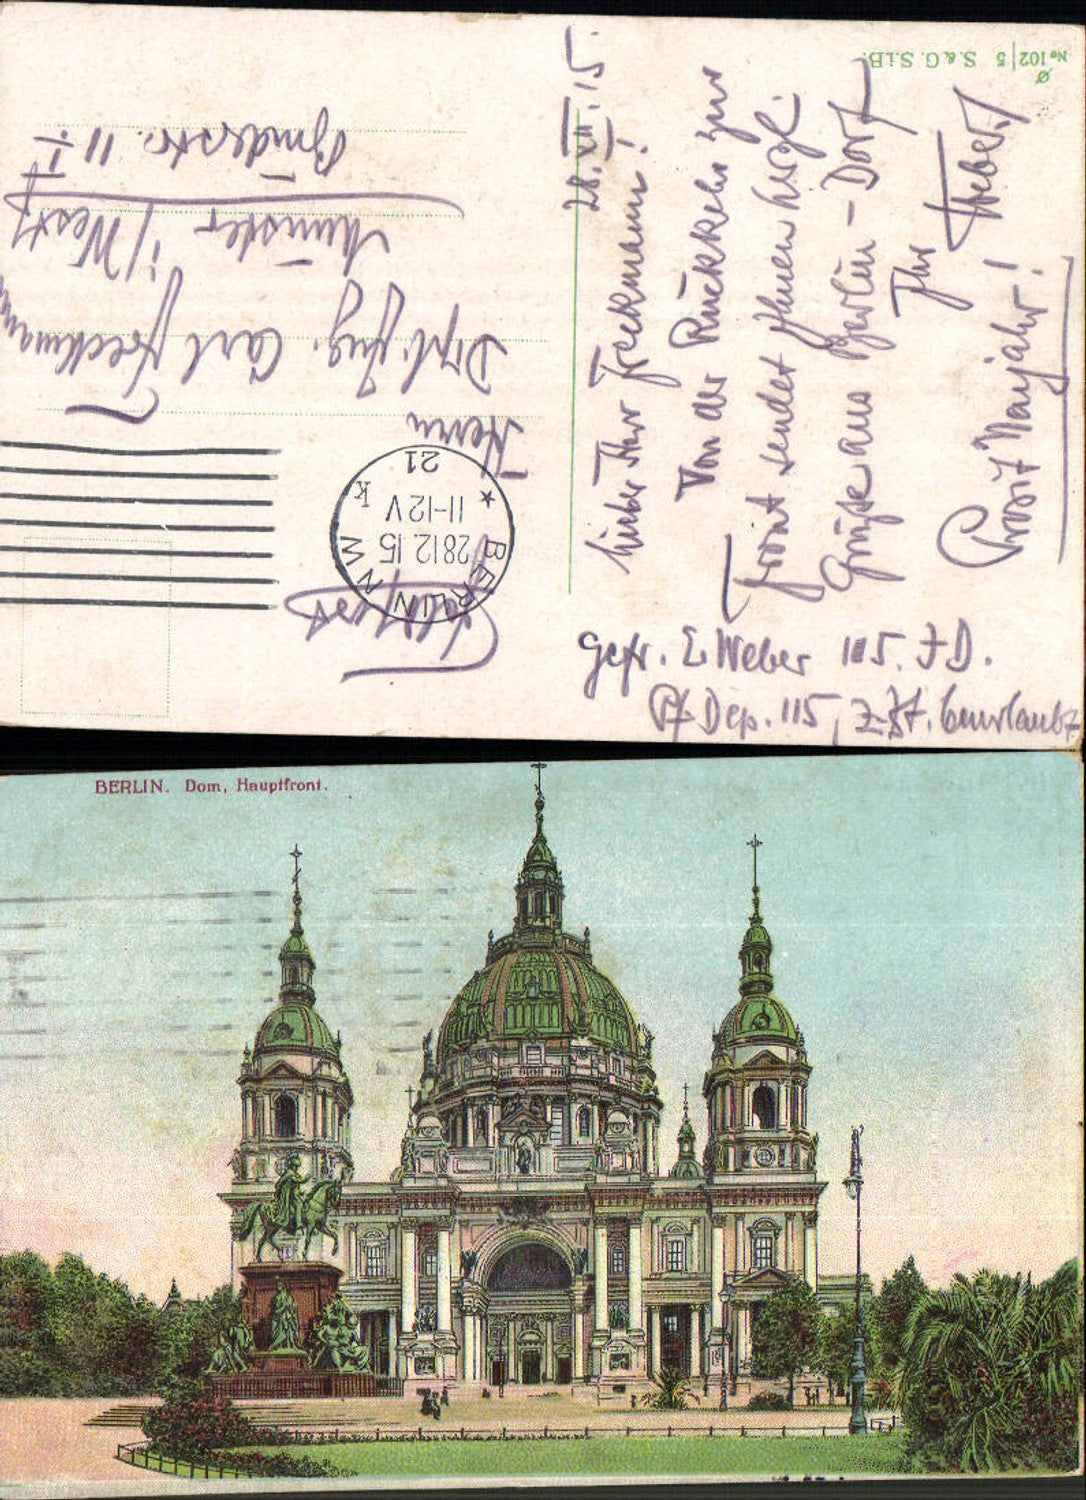 No 102/5 S. & G. S. i B.
Feldpost
BERLIN NW
28.12.15
11-12 V
* k
21
Herrn
Dipl. Ing. Carl Freckmann
Münster i/Westf
11 I
28. XII. 15.
Lieber Herr Freckmann!
Von der Rückkehr zur
Front sendet Ihnen herzl.
Grüße aus Berlin-Dorf
Ihr
Weber
Prosit Neujahr!
Gefr. E. Weber 115. J D.
Pf. Dep. 115, z. Zt. beurlaubt
BERLIN. Dom, Hauptfront.